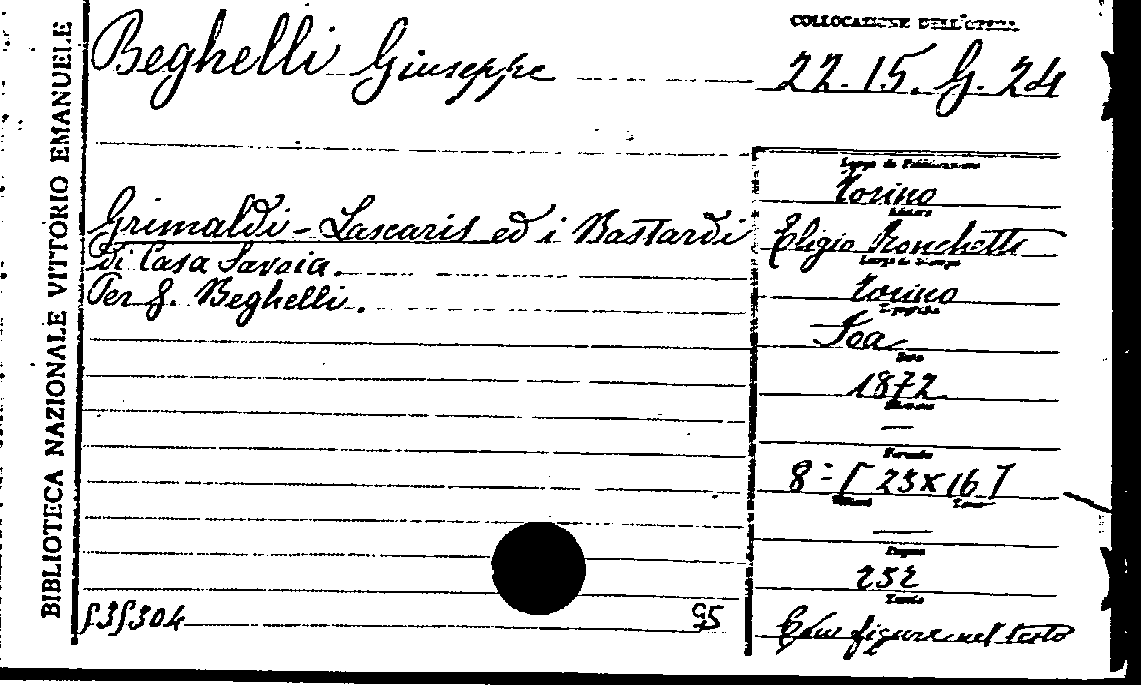 BIBLIOTECA NAZIONALE VITTORIO EMANUELE
Beghelli Giuseppe
COLLOCAZIONE DELL'OPERA
22.15.G.24
Grimaldi - Lascaris ed i Bastardi
di Casa Savoia.
Per G. Beghelli.
Luogo di Pubblicazione
Torino
Editore
Eligio Ronchetti
Luogo di Stampa
Torino
Tipografia
Foa
Data
1872
Formato
8º [23x16]
Pagine
252
Tavole
Con figure nel testo
535304
95